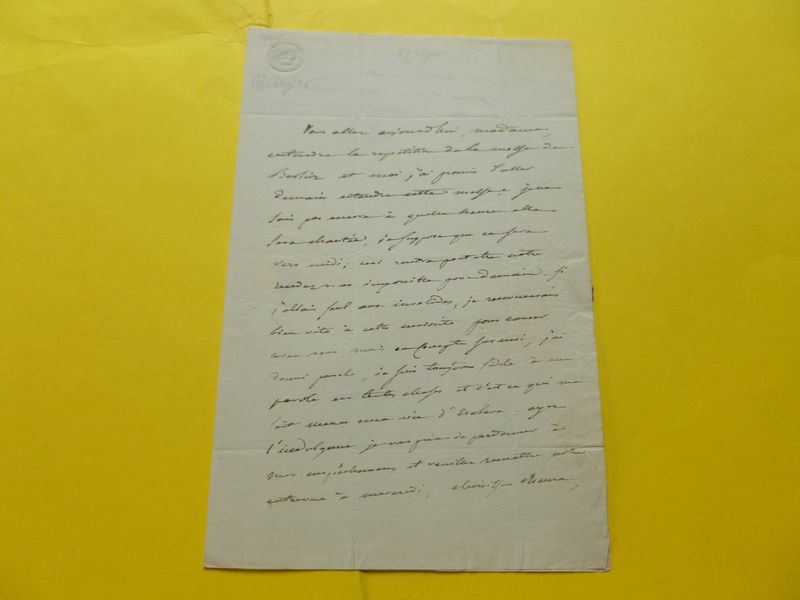 Berryer
Vous allez aujourd'hui, madame,
entendre la repetition de la messe de
Berlioz et moi, j'ai promis d'aller
demain entendre cette messe; je ne
sais pas encore à quelle heure elle
sera chantée, je suppose que ce sera
vers midi; ceci rendra peut-etre notre
rendez-vous impossible pour demain. Si
j'allais seul aux invalides, je renoncerais
bien vite à cette curiosité pour causer
avec vous, mais on compte sur moi, j'ai
donné parole, je suis toujours fidele à ma
parole en toutes choses et c'est ce qui me
fait mener une vie d'esclave. ayez
l'indulgence je vous prie de pardonner à
mes empêchemens et veuillez remettre notre
entrevue à mercredi, heure,